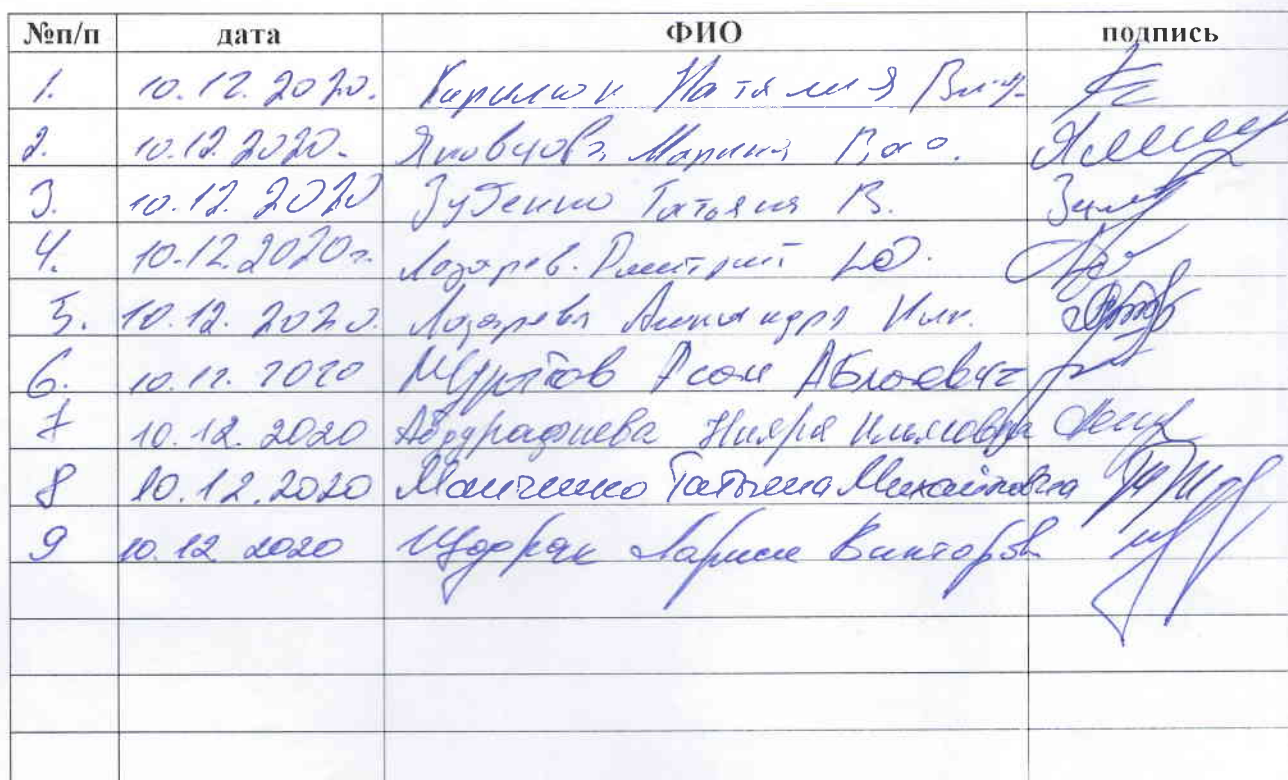 №п/п дата ФИО подпись
1. 10.12.2020. Кирилюк Наталия
2. 10.12.2020. Яковцова Марина Вас.
3. 10.12.2020 Зубенко Татьяна В.
4. 10.12.2020г. Лазарев Дмитрий Ю.
5. 10.12.2020. Лазарева Александра Ник.
6. 10.12.2020 Муратов Асан Аблаевич
7 10.12.2020 Абдураджиева Нияра Ильясовна
8 10.12.2020 Манченко Татьяна Михайловна
9 10.12 2020 Лариса Викторов